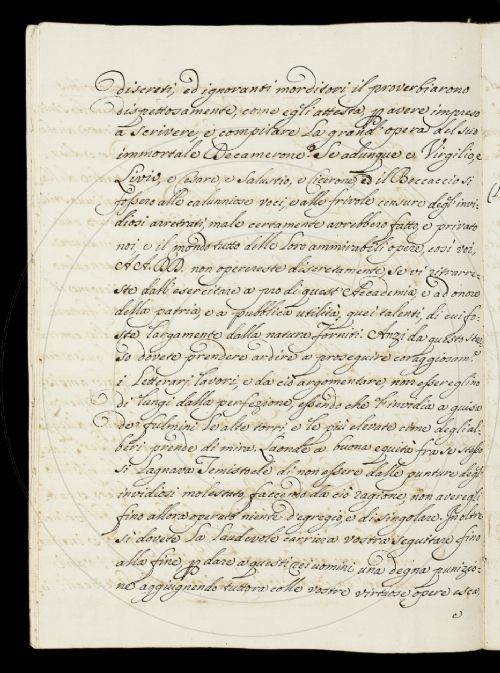 discreti, ed ignoranti morditori il proverbiarono
dispettosamente, come egli attesta p avere impreso
a scrivere, e compilare la grand' opera del suo
immortale Decamerone. Se adunque e Virgilio, e
Livio, e Cesare e Salustio, e Cicerone, ed il Boccaccio si
fossero alle calunniose voci, e alle frivole censure degl'invi-
diosi arretrati, malo certamente avrebbero fatto, e privato
noi e il mondo tutto delle loro ammirabili opere, così voi,
AA. DD. non operereste discretamente, se vi ritrarre-
ste dall'esercitare a pro di quest' Accademia, e ad onore
della patria, e a pubblica utilità, quei talenti, di cui fo-
ste largamente dalla natura forniti. Anzi da questo stes-
so dovete prendere ardire a proseguire coraggiosam.e
i Letterarj lavori, e da ciò argomentare non essere eglino
di lungi dalla perfezione, essendo che l'invidia a guisa
de' fulmini le alte torri e le più elevate cime degli al-
beri prende di mira. Laonde a buona equità fra se stesso
si lagnava Temistocle di non essere dalle punture degl'
invidiosi molestato, faccendo da ciò ragione, non aver egli
fino allora operato niente d'egregio, e di singolare. Inoltre
si dovete la laudevole carriera vostra seguitare fino
alla fine p dare a questi rei uomini una degna punizio-
ne aggiugnendo tuttora colle vostre virtuose opere esca,
e